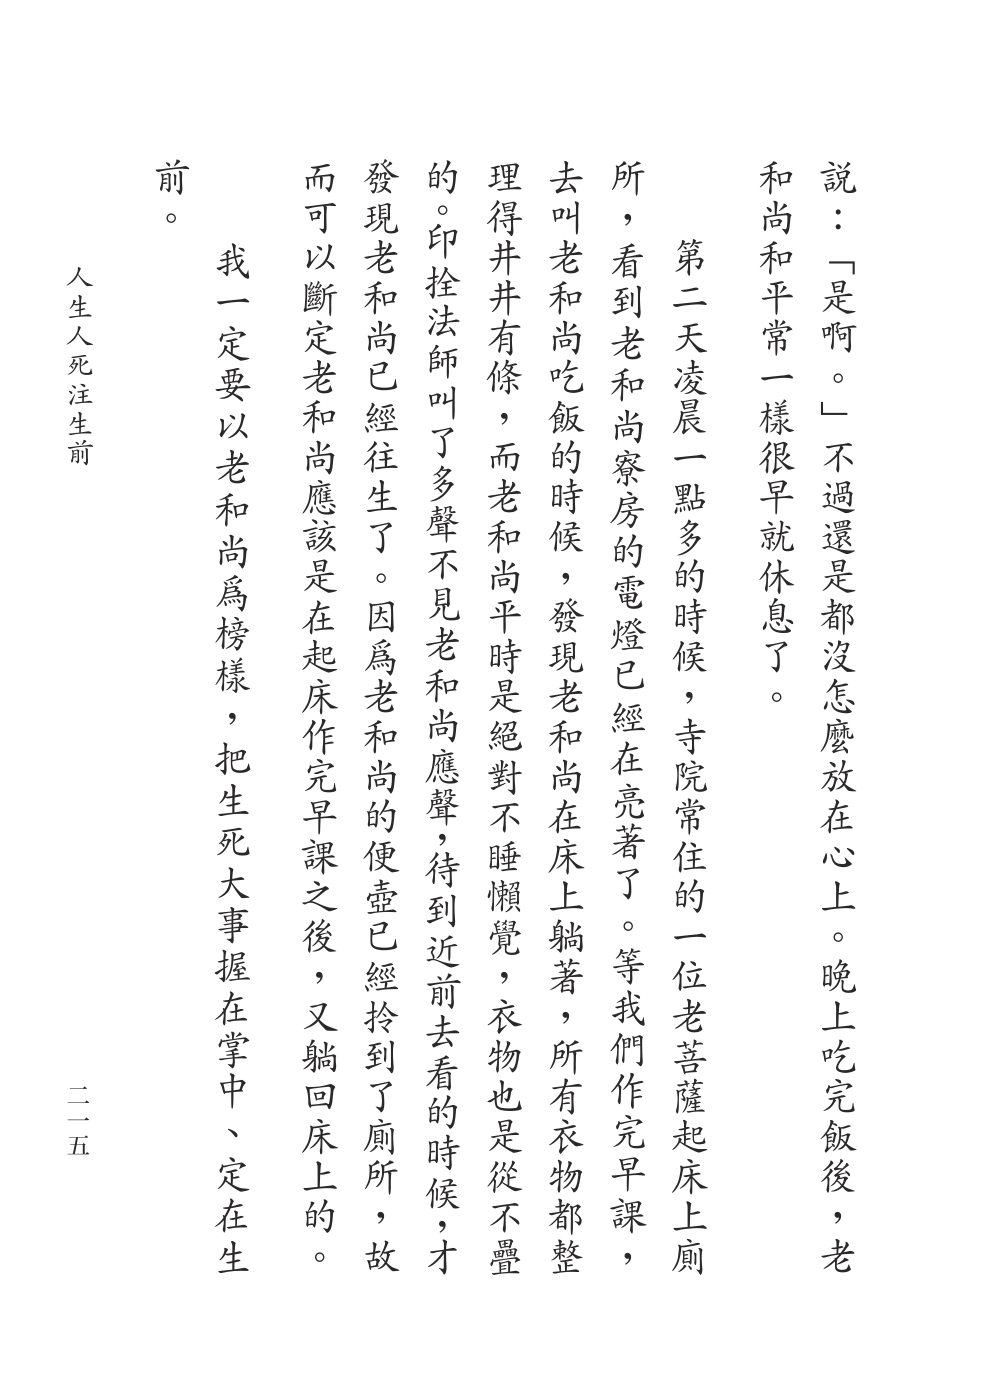 説：「是啊。」不過還是都沒怎麼放在心上。晚上吃完飯後，老
和尚和平常一樣很早就休息了。
第二天凌晨一點多的時候，寺院常住的一位老菩薩起床上廁
所，看到老和尚寮房的電燈已經在亮著了。等我們作完早課，
去叫老和尚吃飯的時候，發現老和尚在床上躺著，所有衣物都整
理得井井有條，而老和尚平時是絕對不睡懶覺，衣物也是從不疊
的。印拴法師叫了多聲不見老和尚應聲，待到近前去看的時候，才
發現老和尚已經往生了。因爲老和尚的便壺已經拎到了廁所，故
而可以斷定老和尚應該是在起床作完早課之後，又躺回床上的。
我一定要以老和尚爲榜樣，把生死大事握在掌中、定在生
前。
人生人死注生前
二一五